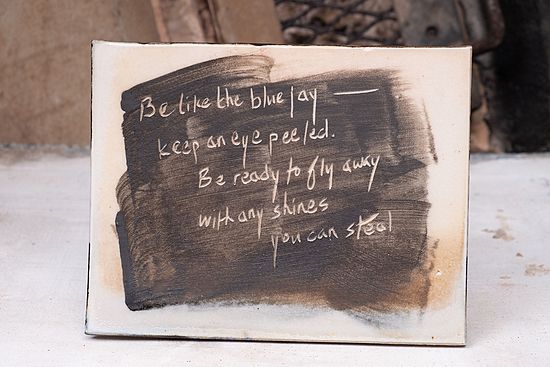 Be like the blue jay —
keep an eye peeled.
Be ready to fly away
with any shines
you can steal